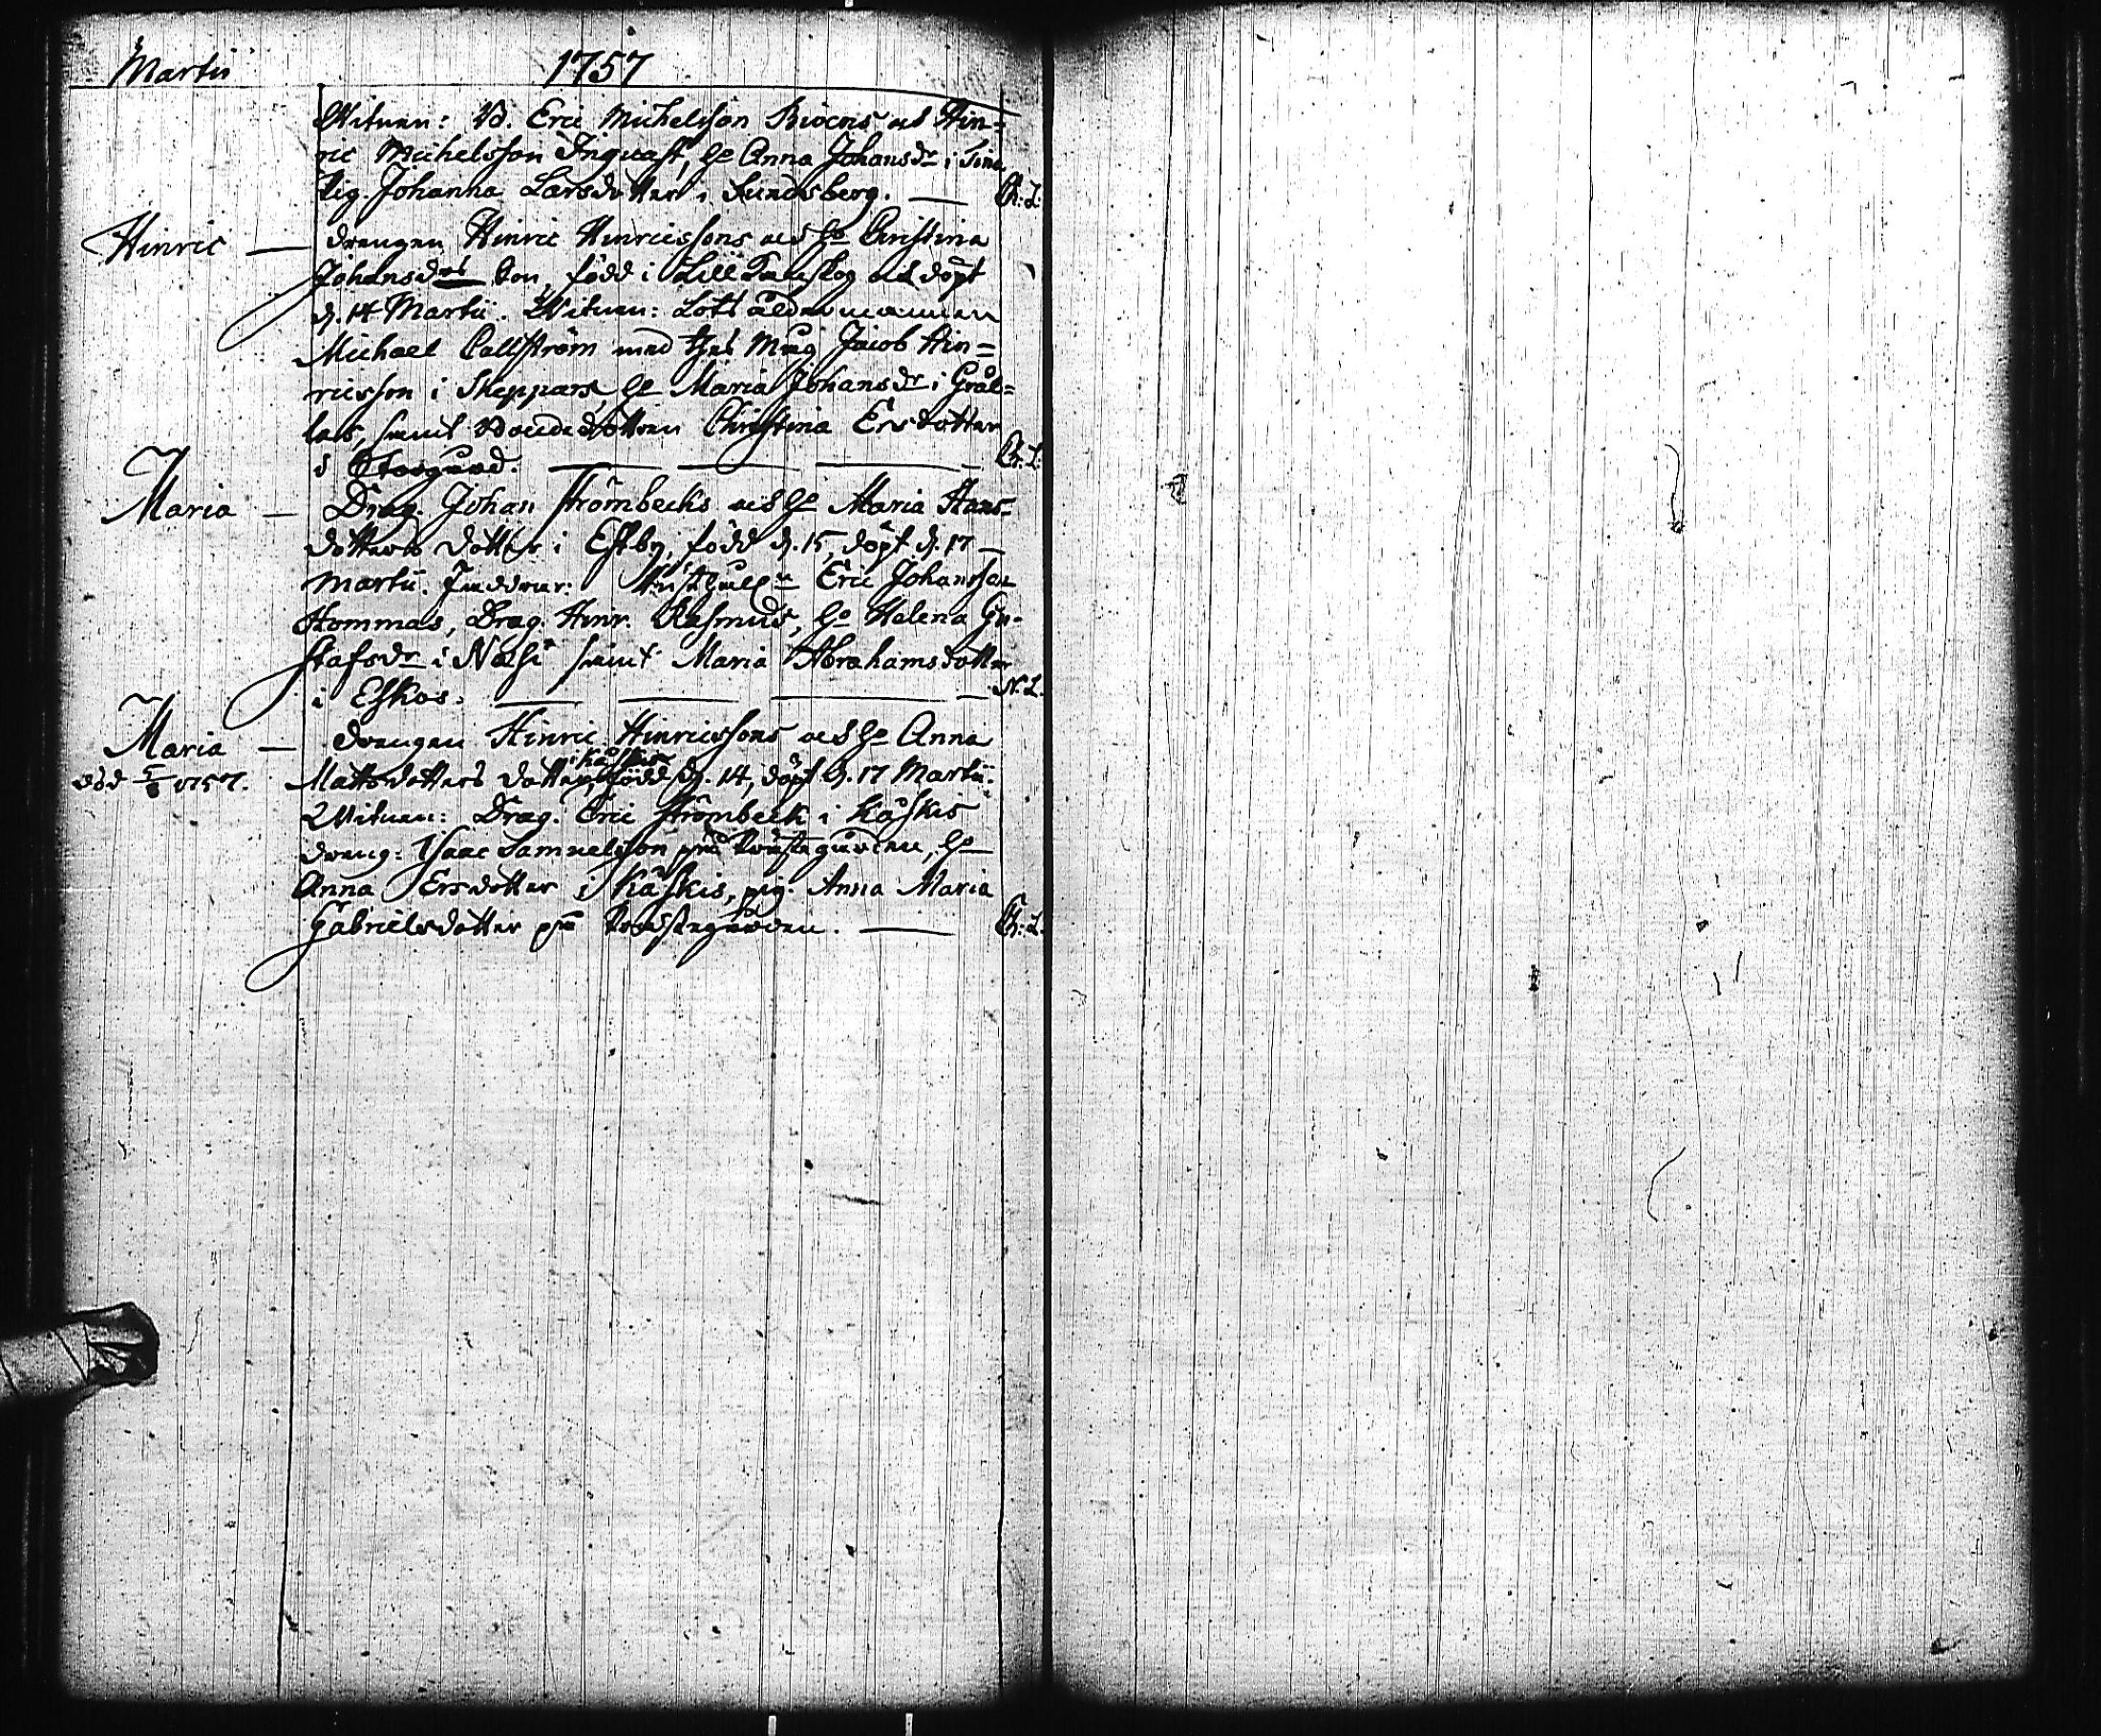 Martii 1757
Wittnen: B. Eric Michelsson Biörns och Hin=
ric Michelsson Ingvast, h:o Anna Johansdr i
Pig. Johanna Larsdotter i Sundsberg. — Ch: L:
Hinric — Drengen Hinric Hinricssons och h:o Christina
Johansdrs Son, född i Lill och döpt
d. 14 Martii. Wittnen: Lots åldermannen
Michael Callström med dess Mug Jacob Hin=
ricsson i Skeppars h:o Maria Johansdr i Grål=
las, samt Bondedottren Christina Ersdotter
i Storgård. — — — Ch: L:
Maria — Drag. Johan Strömbecks och h:o Maria Hans-
dotters dotter i Estby, född d. 15, döpt d. 17 —
Martii. Faddrar: Rusthåll:n Eric Johansson
Hommas, Drag. Hinr. Rasmus, h:o Helena Gu-
stafsdr i Näse samt Maria Abrahamsdotter
i Eskos. — — — N. L.
Maria — Drengen Hinric Hinricssons och h:o Anna
i Kåskis
död 5/6 1757. Mattsdotters dotter, född d. 14, döpt d. 17 Martii.
Wittnen: Drag. Eric Strömbeck i Kåskis
dreng: Isaac Samuelsson på Prästegården, h:o
Anna Ersdotter i Kåskis, pig. Anna Maria
Gabrielsdotter på Prästegården. — Ch: L.